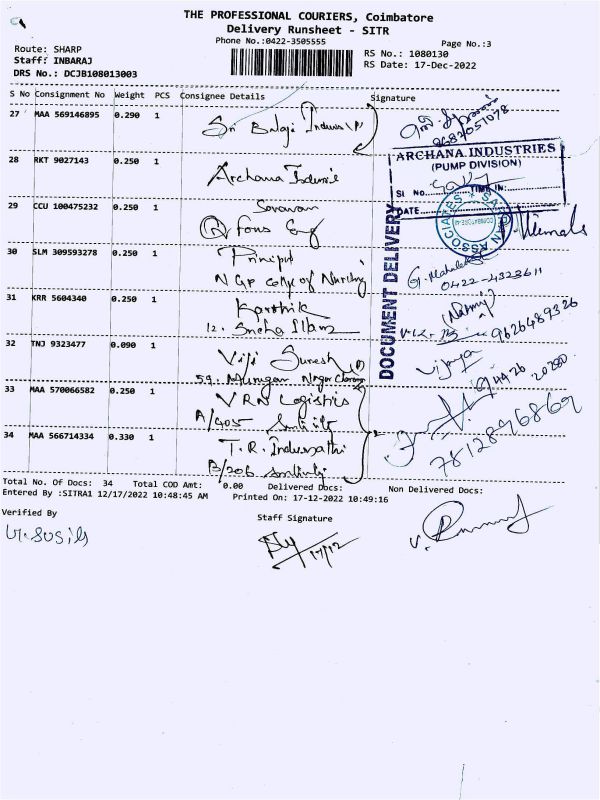 THE PROFESSIONAL COURIERS, Coimbatore
Delivery Runsheet - SITR
Phone No.:0422-3505555
Page No.:3
Route: SHARP
Staff: INBARAJ
DRS No.: DCJB108013003
RS No.: 1080130
RS Date: 17-Dec-2022
S No Consignment No Weight PCS Consignee Details Signature
27 MAA 569146895 0.290 1 Sri Balaji
9682051078
28 RKT 9027143 0.250 1 Archana
ARCHANA INDUSTRIES
(PUMP DIVISION)
Sl No. TIME IN:
DATE
DOCUMENT DELIVERY
29 CCU 100475232 0.250 1 Saravanan
Fous Eng
30 SLM 309593278 0.250 1 Principal
N G P College of Nursing
0422-4323611
31 KRR 5604340 0.250 1 Karthik
12. Sneha Illam
9626489326
32 TNJ 9323477 0.090 1 Viji Suresh
59. Murugan Nagar
Vijaya
33 MAA 570066582 0.250 1 VRN Logistics
A/405
7812896869
34 MAA 566714334 0.330 1 T.R. Indumathi
B/206
Total No. Of Docs: 34 Total COD Amt: 0.00 Delivered Docs: Non Delivered Docs:
Entered By :SITRA1 12/17/2022 10:48:45 AM Printed On: 17-12-2022 10:49:16
Verified By
Staff Signature
17/12